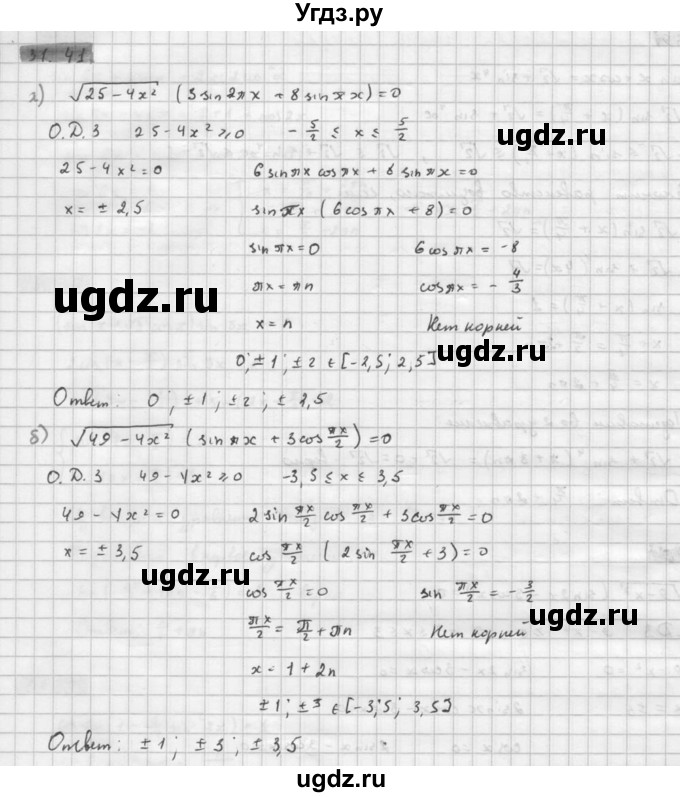 Угдз.ру
31.41
а) √25 - 4x² (3 sin 2πx + 8 sin πx) = 0
О.Д.З 25 - 4x² ≥ 0 - 5/2 ≤ x ≤ 5/2
25 - 4x² = 0 6 sin πx cos πx + 8 sin πx = 0
x = ± 2,5 sin πx (6 cos πx + 8) = 0
sin πx = 0 6 cos πx = -8
πx = πn cos πx = - 4/3
ugdz.ru
x = n Нет корней
ugdz.ru
0; ±1; ±2 ∈ [-2,5; 2,5]
Ответ: 0; ±1; ±2; ± 2,5
ugdz.ru
б) √49 - 4x² (sin πx + 3 cos πx/2) = 0
О.Д.З 49 - 4x² ≥ 0 -3,5 ≤ x ≤ 3,5
49 - 4x² = 0 2 sin πx/2 cos πx/2 + 3 cos πx/2 = 0
x = ± 3,5 cos πx/2 (2 sin πx/2 + 3) = 0
ugdz.ru
ugdz.ru
cos πx/2 = 0 sin πx/2 = - 3/2
πx/2 = π/2 + πn Нет корней
x = 1 + 2n
ugdz.ru
±1; ±3 ∈ [-3,5; 3,5]
Ответ: ±1; ±3; ± 3,5
ugdz.ru
ugdz.ru